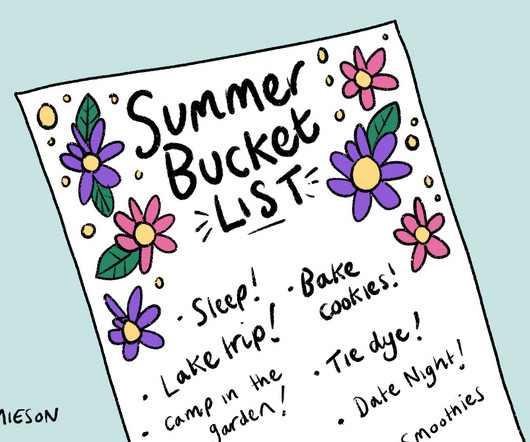 Summer
Bucket
LIST
• Sleep!
• Lake trip!
• Camp in the
garden!
• Bake
cookies!
• Tie dye!
• Date Night!
Smoothies
MIESON